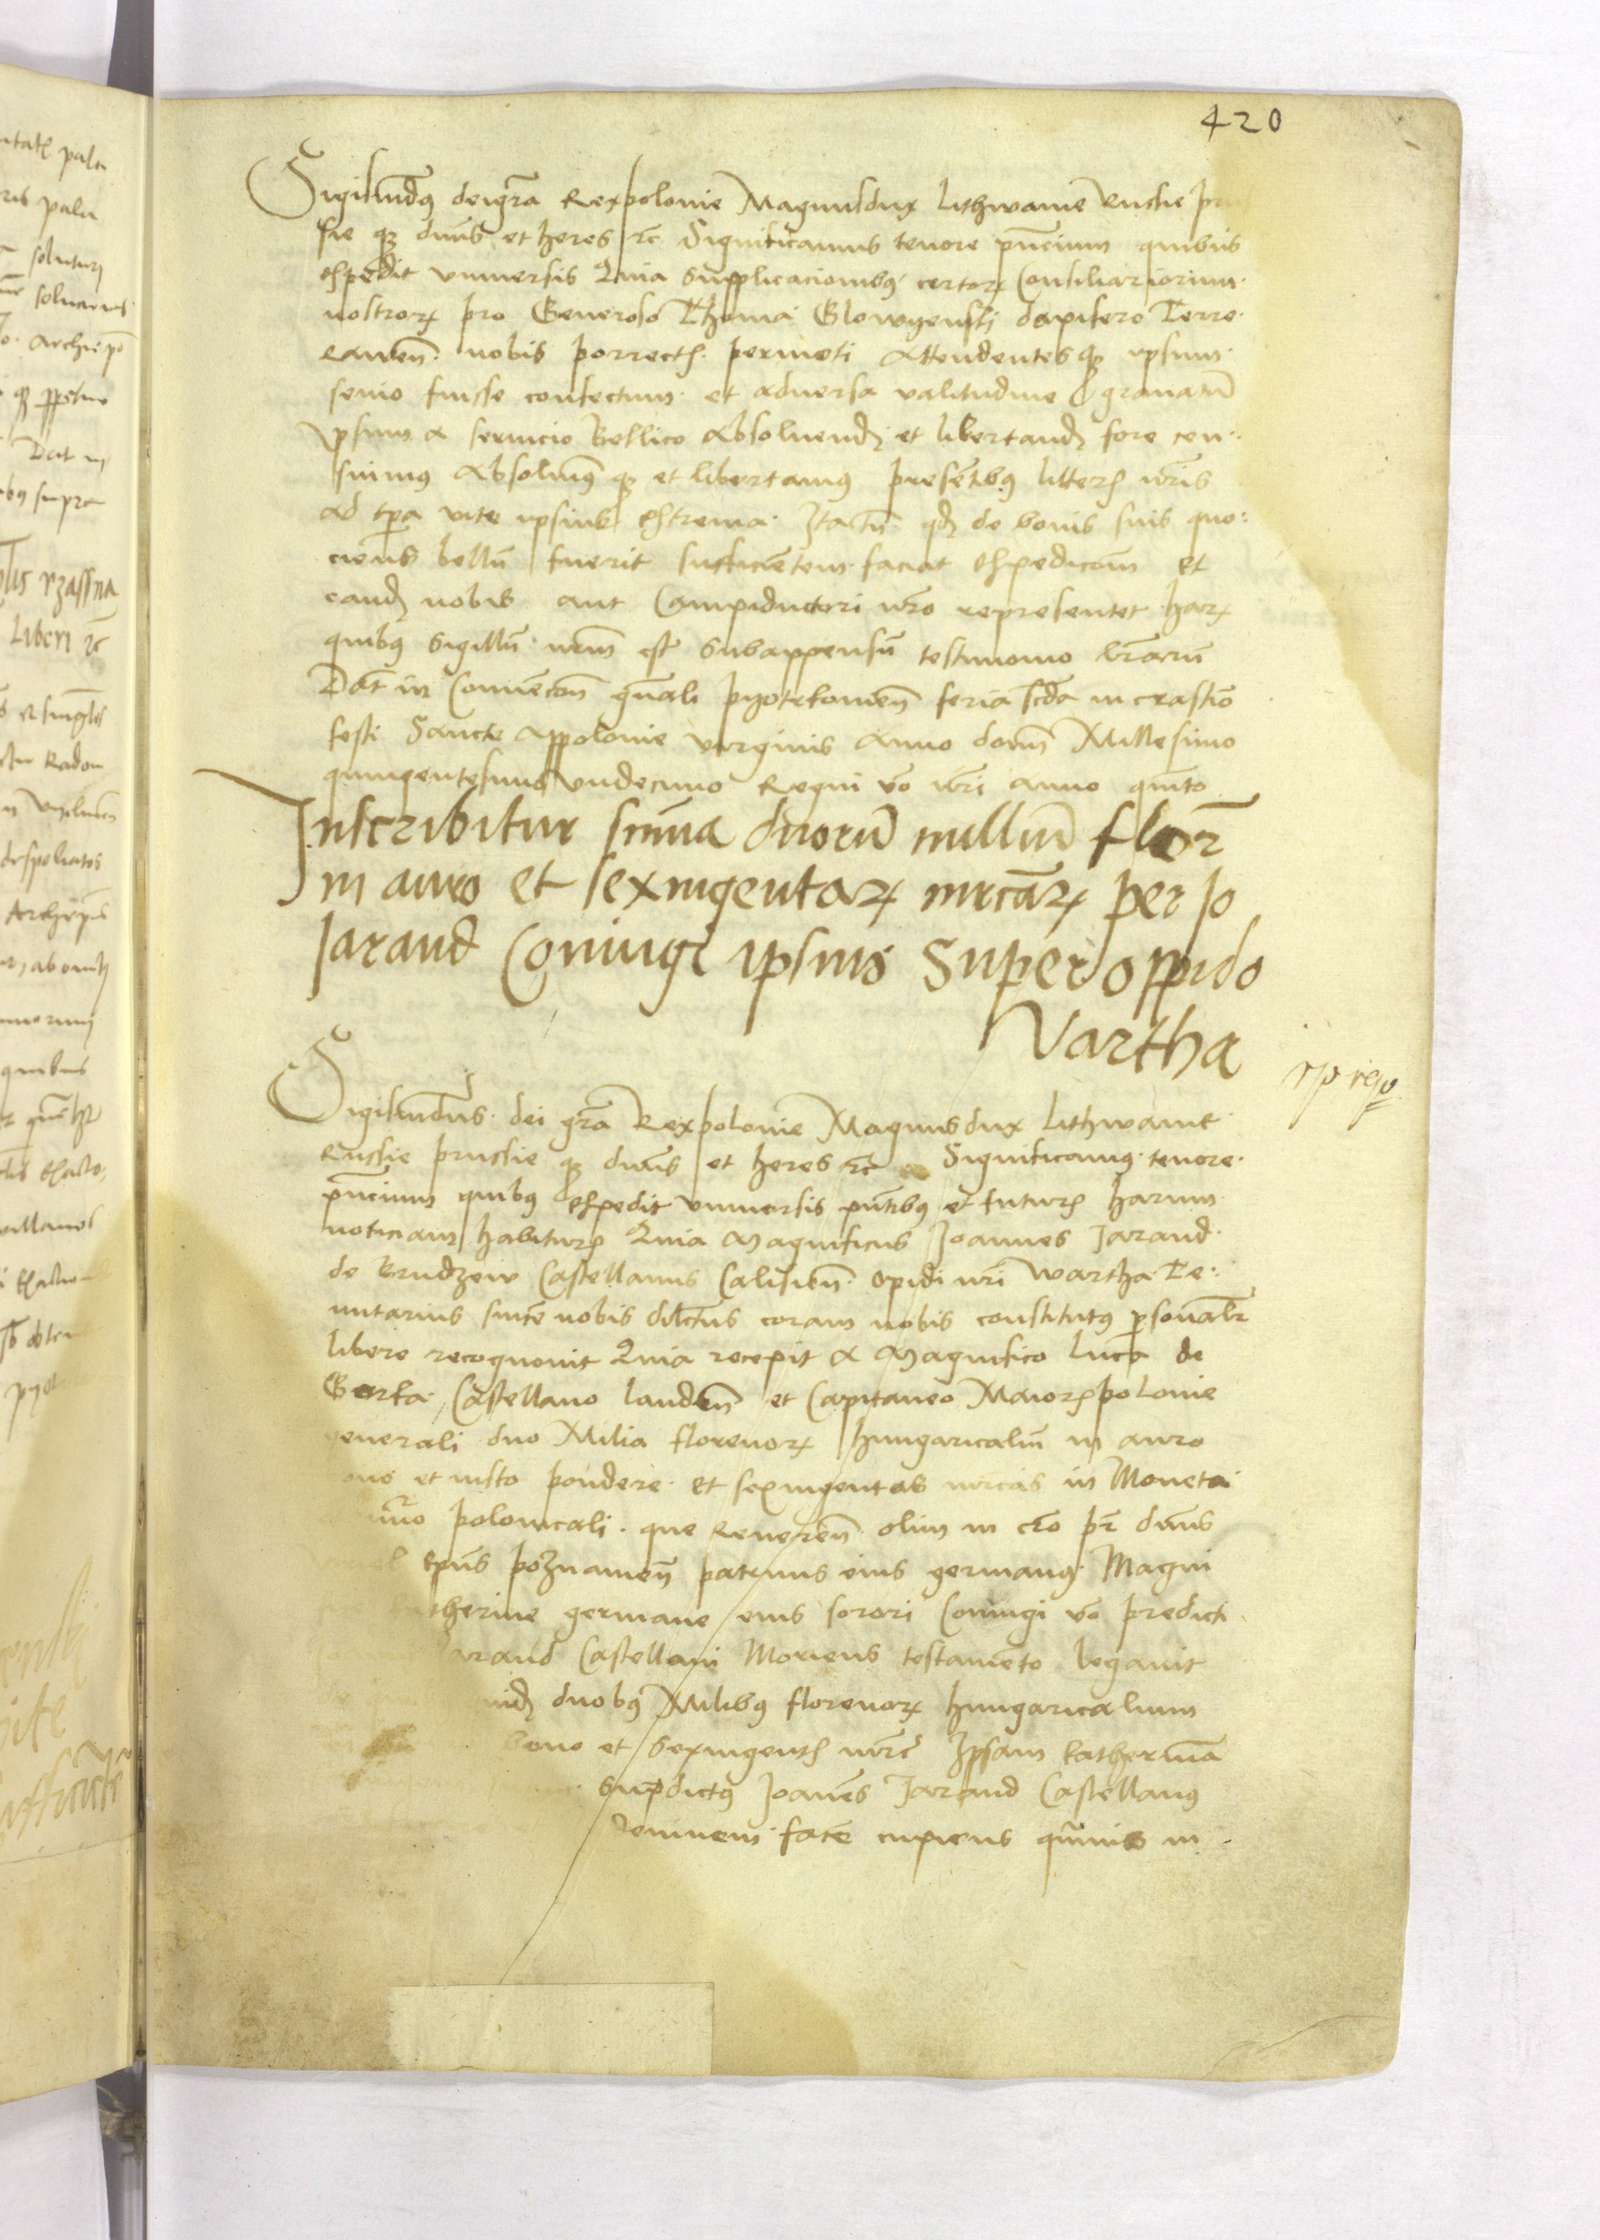 420
Sigismundus dei gra Rex polonie Magnus dux Lithwanie Russie pru
sie qz dnus et heres etc Significamus tenore pncium quibus
expedit vniuersis Quia Supplicacionibus certorz Consiliariorum
nostrorz pro Generoso Thoma Glowgenski dapifero Terre
Rawen nobis porrectis permoti Attendentes qz ipsum
senio fuisse confectum et aduersa valitudine grauatu
ipsum a seruicio Bellico Absoluendz et libertandz fore cen
suimus Absoluimus qz et libertamus presentibus litteris nris
ad tpa vite ipsius extrema Itatn qz de bonis suis quo
ciens bellu fuerit sufficientem faciat expedicom et
eandz nobis aut Campiductori nro representet harz
quibus Sigillu nrm est Subappensu testimonio lrarum
Dat in Convencon gnali pyotrkowien feria scda in crastino
festi Sancte Appolonie virginis Anno domi Millesimo
quingentesimo vndecimo Regni vo nri anno quinto
Inscribitur sūma duorū milliū flor
in auro et sexingentarz mrcarz per Jo
Jarand Coniugi ipsius Super oppido
Vartha
Sigismundus dei gra Rex polonie Magnus dux Lithwanie
Russie prussie qz dnus et heres etc Significamus tenore
pncium quibus expedit vniuersis pntibus et futuris harum
noticiam habituris Quia Magnificus Joannes Jarand
de Brudzew Castellanus Calisien Opidi nri Wartha Te
nutarius sincere nobis dilctus coram nobis constitutus psonalr
libere recognouit Quia recepit a Magnifico Luca de
Gorka Castellano landen et Capitaneo Maioris polonie
generali duo Milia florenorz hungaricaliu in auro
bono et iusto pondere et sexingentas mrcas in Moneta
nro polonicali que Reueren olim in cro pr dnus
epus poznanien patruus eius germanus Magni
katherine germane eius sorori Coniugi vo predicti
Jarand Castellani Moriens testamento legauit
duobus Milibus florenorz hungaricalium
bono et Sexingentis mrc Ipsam katherina
Supdictus Joanes Jarand Castellanus
facere cupiens in